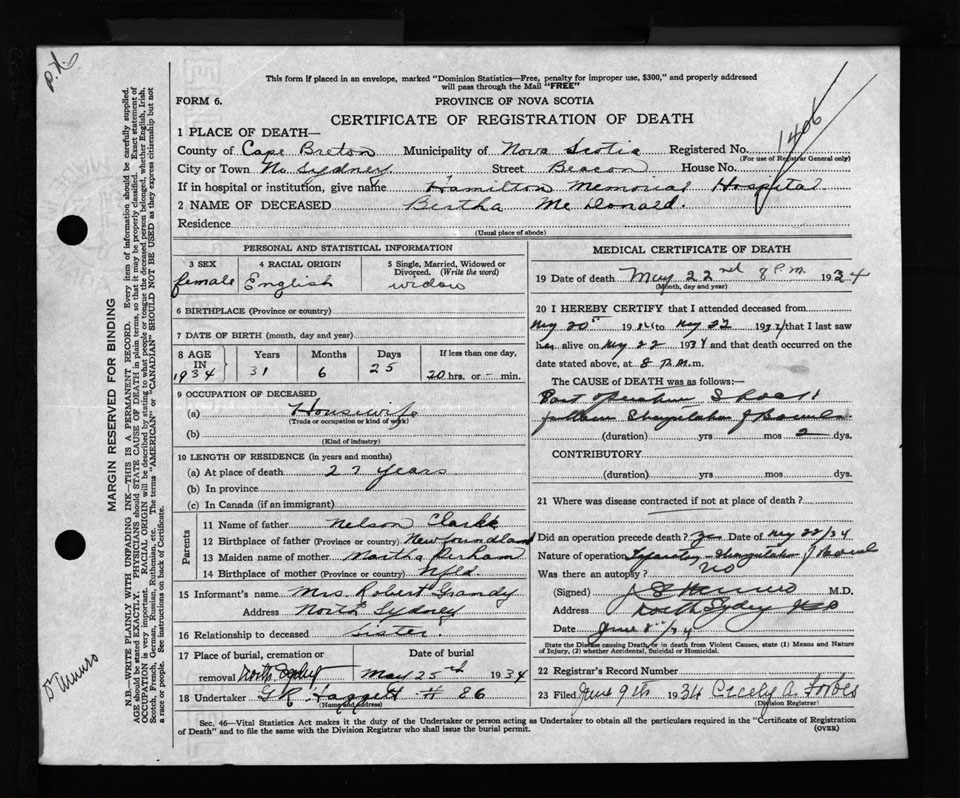 p.x.
This form if placed in an envelope, marked "Dominion Statistics—Free, penalty for improper use, $300," and properly addressed
will pass through the Mail "FREE"
FORM 6.
PROVINCE OF NOVA SCOTIA
CERTIFICATE OF REGISTRATION OF DEATH
1406
1 PLACE OF DEATH—
County of Cape Breton Municipality of Nova Scotia Registered No.
(For use of Registrar General only)
City or Town No. Sydney. Street Beacon House No.
If in hospital or institution, give name Hamilton Memorial Hospital
2 NAME OF DECEASED Bertha McDonald.
Residence
(Usual place of abode)
MARGIN RESERVED FOR BINDING
N.B.—WRITE PLAINLY WITH UNFADING INK—THIS IS A PERMANENT RECORD. Every item of information should be carefully supplied.
AGE should be stated EXACTLY. PHYSICIANS should STATE CAUSE OF DEATH in plain terms, so that it may be properly classified. Exact statement of
OCCUPATION is very important. RACIAL ORIGIN will be described by stating to what people or tongue the deceased person belonged, whether English, Irish,
Scotch, French, German, Russian, Ruthenian, etc. The terms "AMERICAN" or "CANADIAN" SHOULD NOT BE USED as they express citizenship but not
a race or people. See instructions on back of Certificate.
Dr Munro
PERSONAL AND STATISTICAL INFORMATION
3 SEX
female
4 RACIAL ORIGIN
English
5 Single, Married, Widowed or
Divorced. (Write the word)
widow
6 BIRTHPLACE (Province or country)
7 DATE OF BIRTH (month, day and year)
8 AGE IN 1934
Years Months Days If less than one day,
31 6 25 20 hrs. or - min.
9 OCCUPATION OF DECEASED
(a) Housewife
(Trade or occupation or kind of work)
(b)
(Kind of industry)
10 LENGTH OF RESIDENCE (in years and months)
(a) At place of death 27 years
(b) In province
(c) In Canada (if an immigrant)
Parents
11 Name of father Nelson Clarke
12 Birthplace of father (Province or country) Newfoundland
13 Maiden name of mother Martha
14 Birthplace of mother (Province or country) Nfld.
15 Informant's name Mrs. Robert Grandy
Address North Sydney
16 Relationship to deceased Sister.
17 Place of burial, cremation or
removal North Sydney
Date of burial
May 25th 1934
18 Undertaker G.R. # 86
(Name and address)
MEDICAL CERTIFICATE OF DEATH
19 Date of death May 22nd 8 P.M. 1934
(Month, day and year)
20 I HEREBY CERTIFY that I attended deceased from
May 20th 1934 to May 22 1934 that I last saw
her alive on May 22 1934 and that death occurred on
date stated above, at 8 P.M. m.
The CAUSE of DEATH was as follows:—
Post operative Shock
following Strangulation of Bowels
(duration) yrs mos 2 dys.
CONTRIBUTORY
(duration) yrs mos dys.
21 Where was disease contracted if not at place of death?
Did an operation precede death? yes Date of May 22/34
Nature of operation Laparotomy—Strangulation of Bowel
Was there an autopsy? No
(Signed) Munro M.D.
Address North Sydney
Date June 8th/34
State the Disease causing Death, or in death from Violent Causes, state (1) Means and Nature
of Injury, (2) whether Accidental, Suicidal or Homicidal.
22 Registrar's Record Number
23 Filed June 9th 1934 Cicely A. Forbes
(Division Registrar)
Sec. 46—Vital Statistics Act makes it the duty of the Undertaker or person acting as Undertaker to obtain all the particulars required in the "Certificate of Registration
of Death" and to file the same with the Division Registrar who shall issue the burial permit.
(OVER)